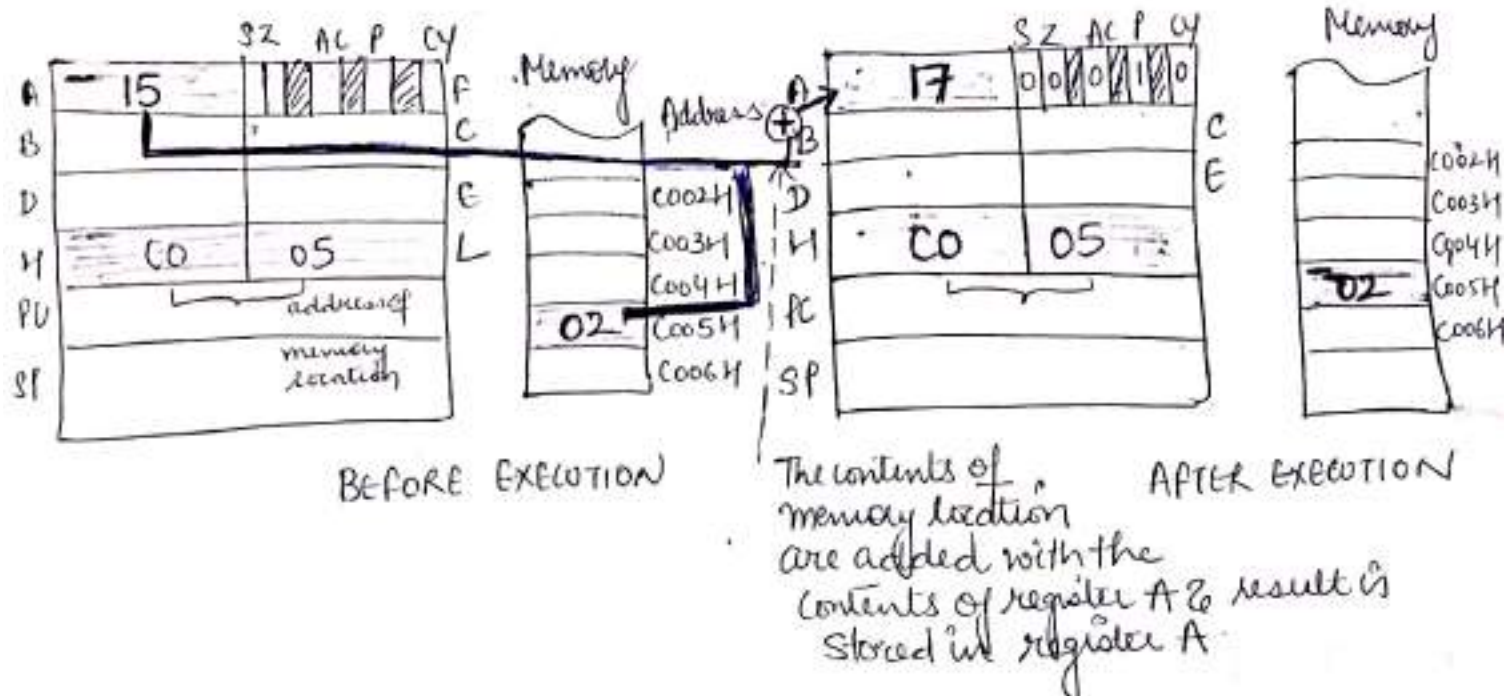 S Z AC P CY
A 15 F
B C
D E
H CO 05 L
address of
PU
memory
location
SP
Memory
Address
C002H
C003H
C004H
02 C005H
C006H
BEFORE EXECUTION
S Z AC P CY
A 17 0 0 0 1 0
+
B C
D E
H CO 05
PC
SP
Memory
C002H
C003H
C004H
02 C005H
C006H
AFTER EXECUTION
The contents of
memory location
are added with the
contents of register A & result is
stored in register A